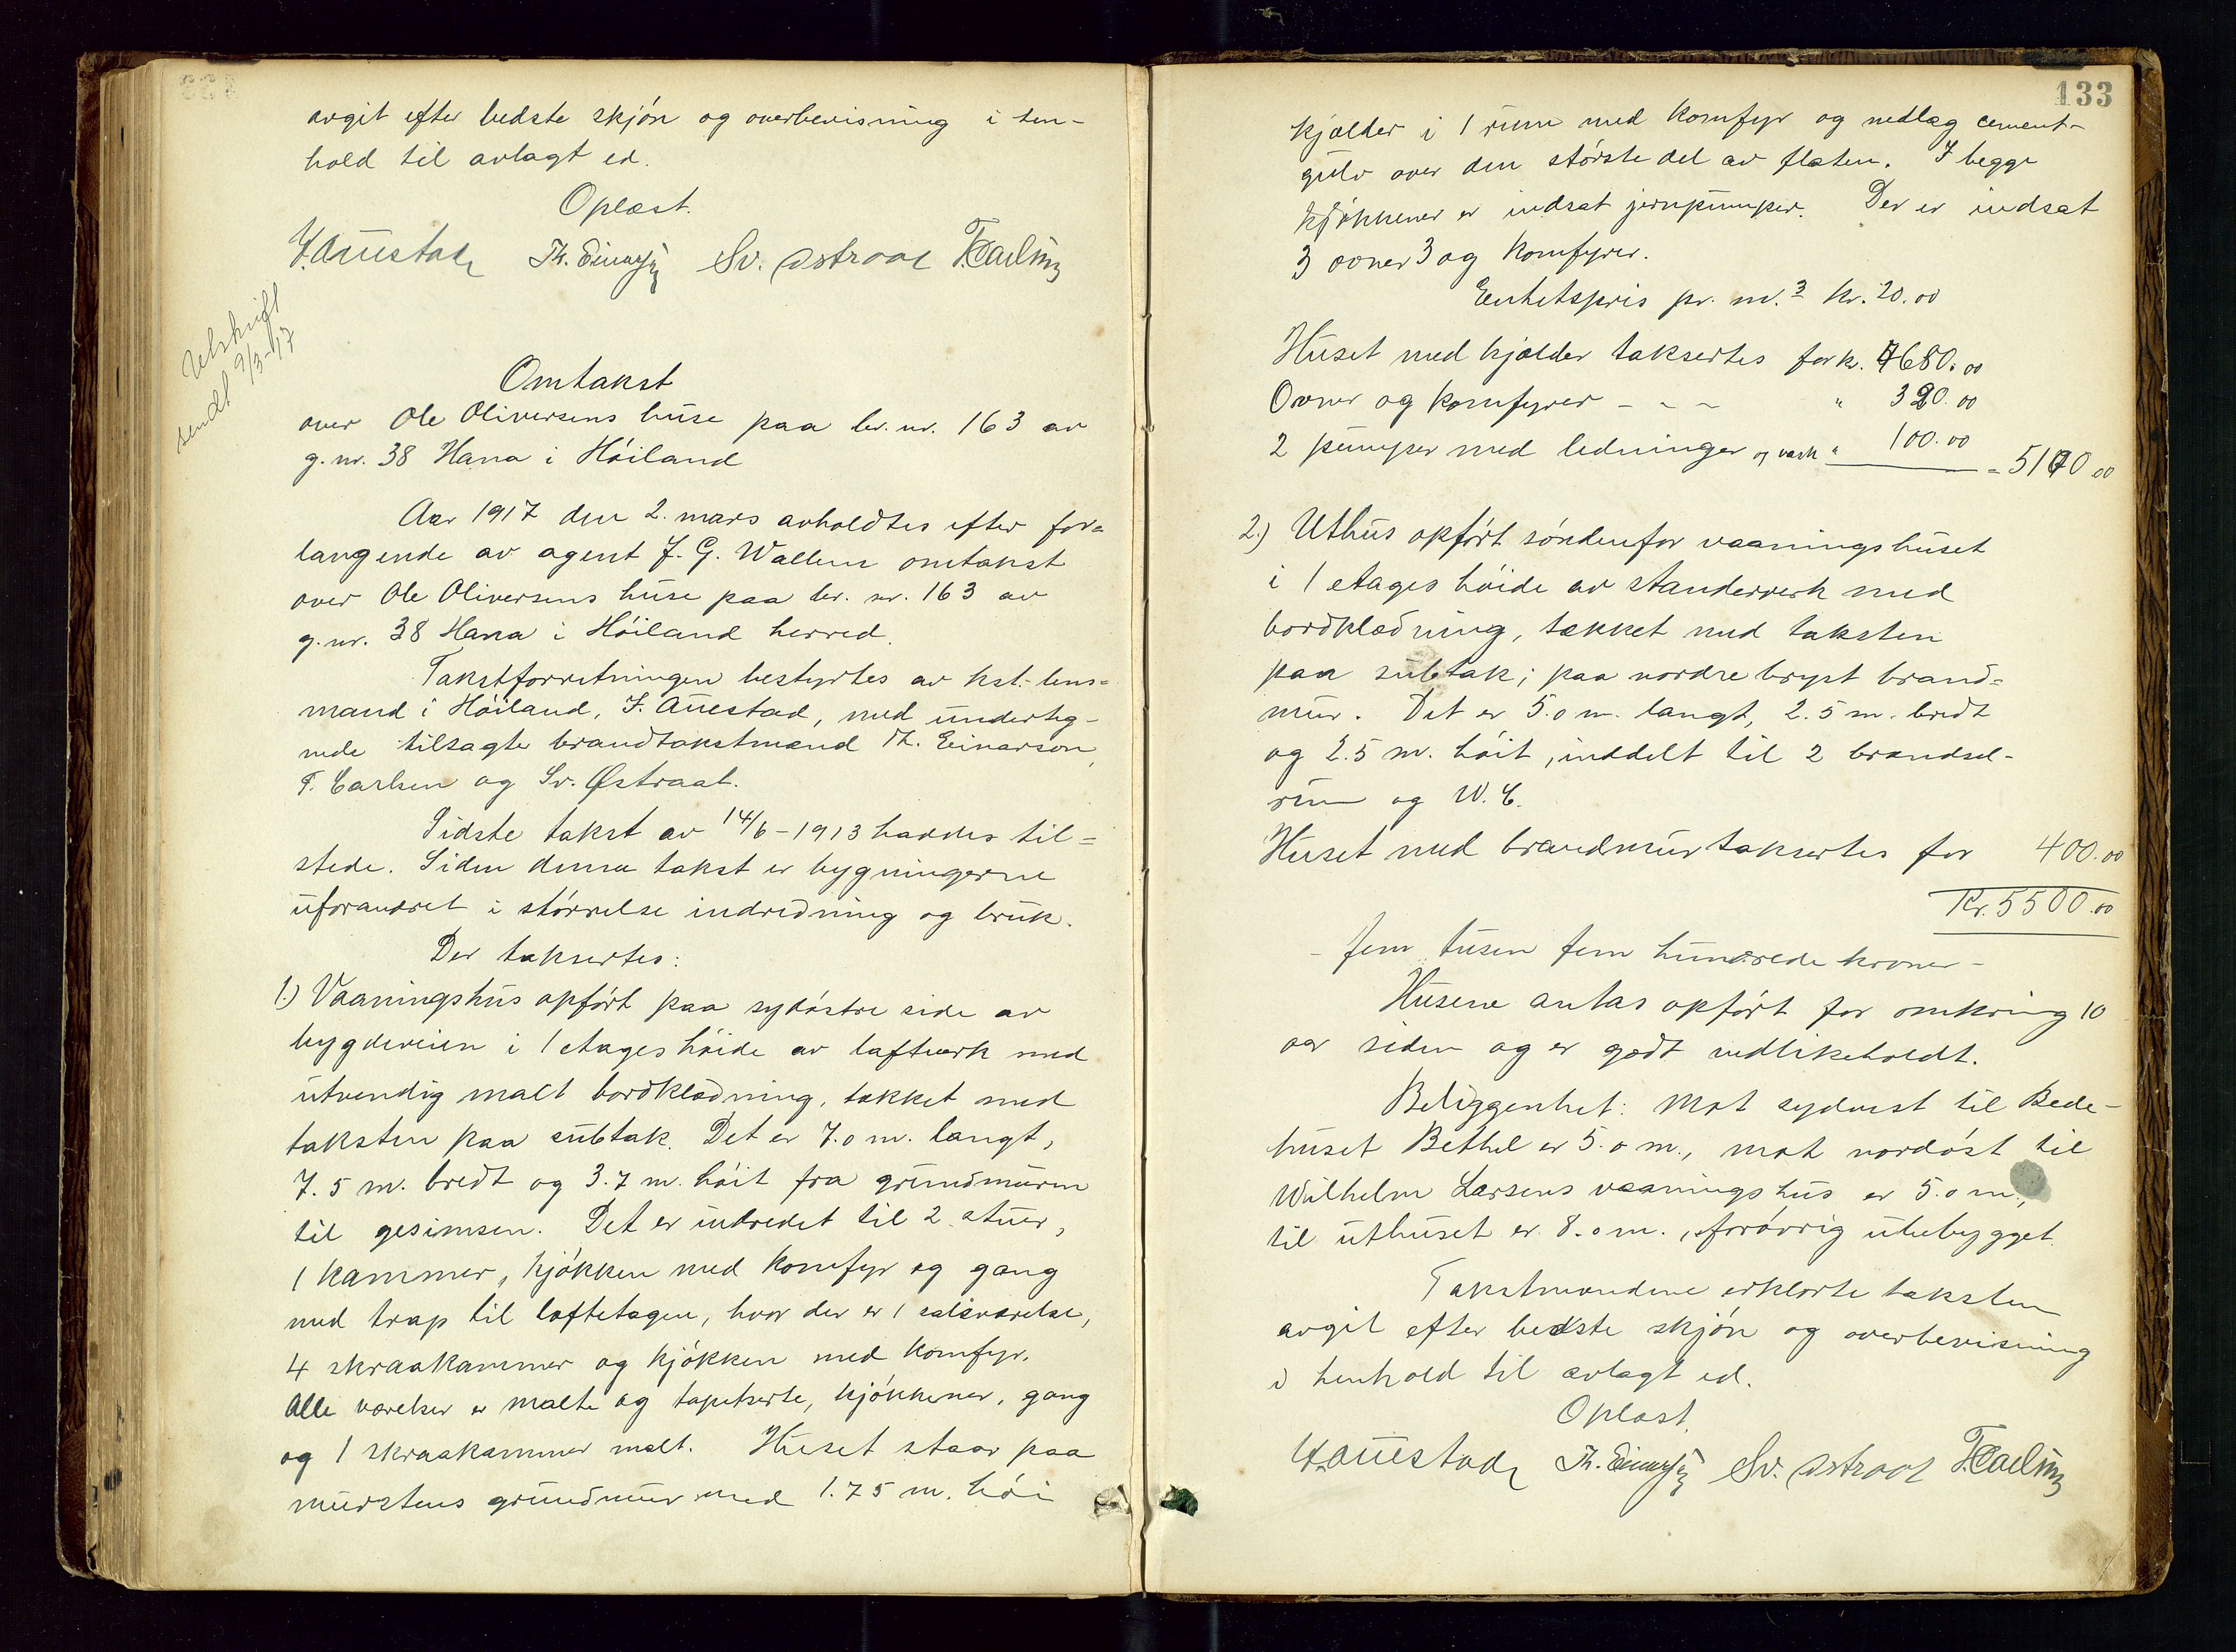 avgit efter bedste skjön og overbevisning i hen-
hold til avlagt ed.
Oplæst.
J. Auestad Th. Einarson Sv. Østraat T. Carlsen
Utskrift
sendt 9/3-17
Omtakst
over Ole Oliversens huse paa br. nr. 163 av
g. nr. 38 Hana i Höiland
Aar 1917 den 2. mars avholdtes efter for-
langende av agent J. G. Wallem omtakst
over Ole Oliversens huse paa br. nr. 163 av
g. nr. 38 Hana i Höiland herred.
Takstforretningen bestyrtes av kst. lens-
mand i Höiland, J. Auestad, med underteg-
nede tilsagte brandtakstmænd Th. Einarson,
T. Carlsen og Sv. Østraat.
Sidste takst av 14/6-1913 haddes til-
stede. Siden denne takst er bygningerne
uforandret i störrelse indredning og bruk.
Der taksertes:
1.) Vaaningshus opfört paa sydöstre side av
bygdeveien i 1 etages höide av laftverk med
utvendig malt bordklædning, tækket med
taksten paa subtak. Det er 7.0 m. langt,
7.5 m. bredt og 3.7 m. höit fra grundmuren
til gesimsen. Det er indredet til 2 stuer,
1 kammer, kjökken med komfyr og gang
med trap til loftetagen, hvor der er 1 salsværelse,
4 skraakammer og kjökken med komfyr.
Alle værelser er malte og tapetserte, kjökkener, gang
og 1 skraakammer malt. Huset staar paa
murstens grundmur med 1.75 m. höi
133
kjælder i 1 rum med komfyr og nedlag cement-
gulv over den störste del av flaten. I begge
kjökkener er indsat jernpumper. Der er indsat
3 ovner og 3 komfyrer.
Enhetspris pr. m.3 kr. 20.00
Huset med kjælder taksertes for kr. 4680.00
Ovner og komfyrer - - - " 320.00
2 pumper med ledninger og vask " 100.00 = 5100.00
2.) Uthus opfört söndenfor vaaningshuset
i 1 etages höide av standerverk med
bordklædning, tækket med taksten
paa subtak; paa nordre bryst brand-
mur. Det er 5.0 m. langt, 2.5 m. bredt
og 2.5 m. höit, inddelt til 2 brændsel-
rum og W. C.
Huset med brandmur taksertes for 400.00
Kr. 5500.00
- fem tusen fem hundrede kroner -
Husene antas opfört for omkring 10
aar siden og er godt vedlikeholdt.
Beliggenhet: Mot sydvest til Bede-
huset Bethel er 5.0 m., mot nordöst til
Wilhelm Larsens vaaningshus er 5.0 m.,
til uthuset er 8.0 m., forövrig ubebygget.
Takstmændene erklærte taksten
avgit efter bedste skjön og overbevisning
i henhold til avlagt ed.
Oplæst.
J. Auestad Th. Einarson Sv. Østraat T. Carlsen